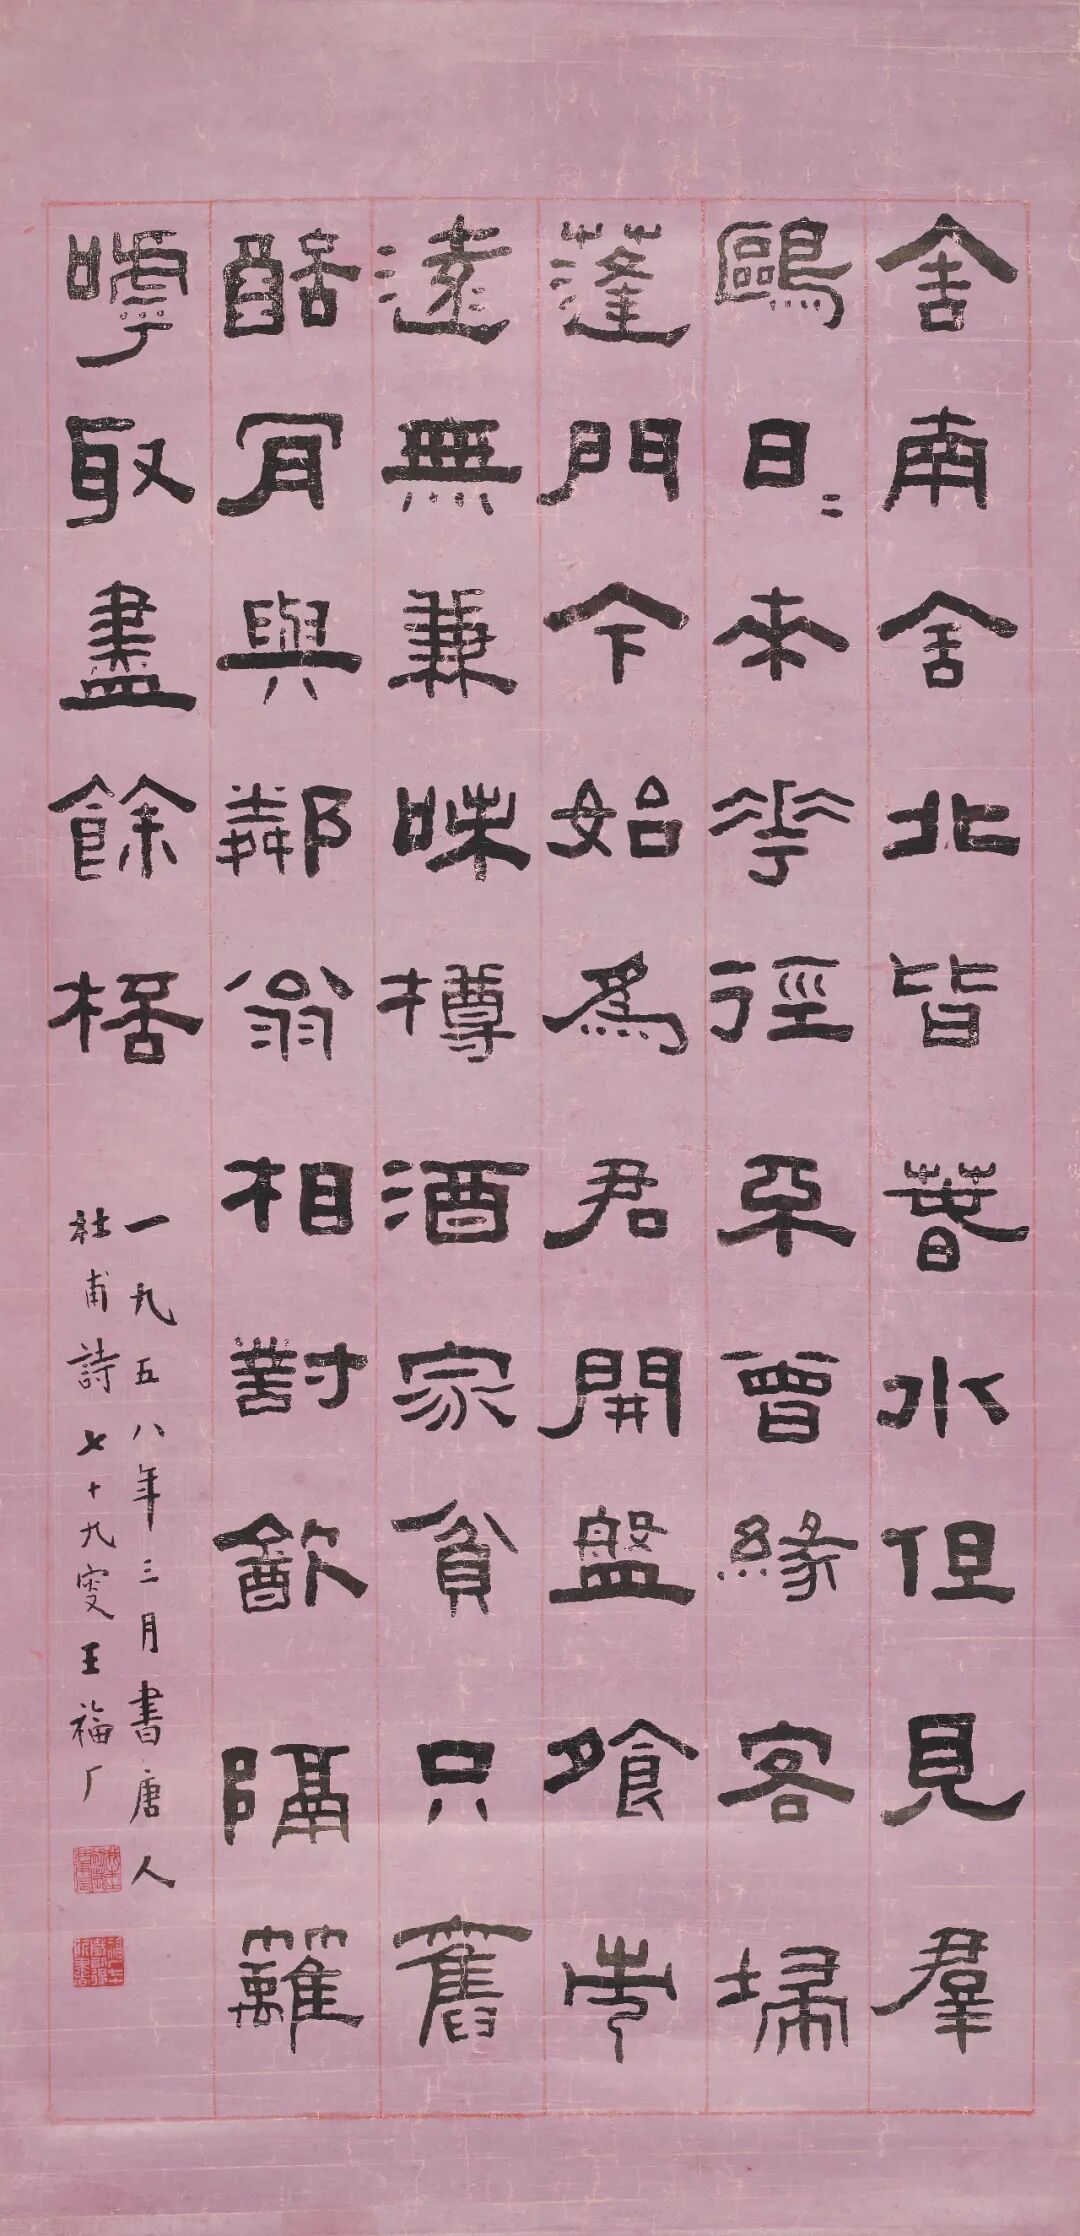 舍南舍北皆春水但見羣
鷗日〻來花徑不曾緣客埽
蓬門今始為君開盤飧市
遠無兼味樽酒家貧只舊
醅肎與鄰翁相對飲隔籬
嘑取盡餘桮
一九五八年三月書唐人
杜甫詩七十九叟王福厂